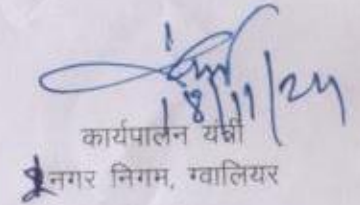 18/11/24
कार्यपालन यंत्री
नगर निगम, ग्वालियर